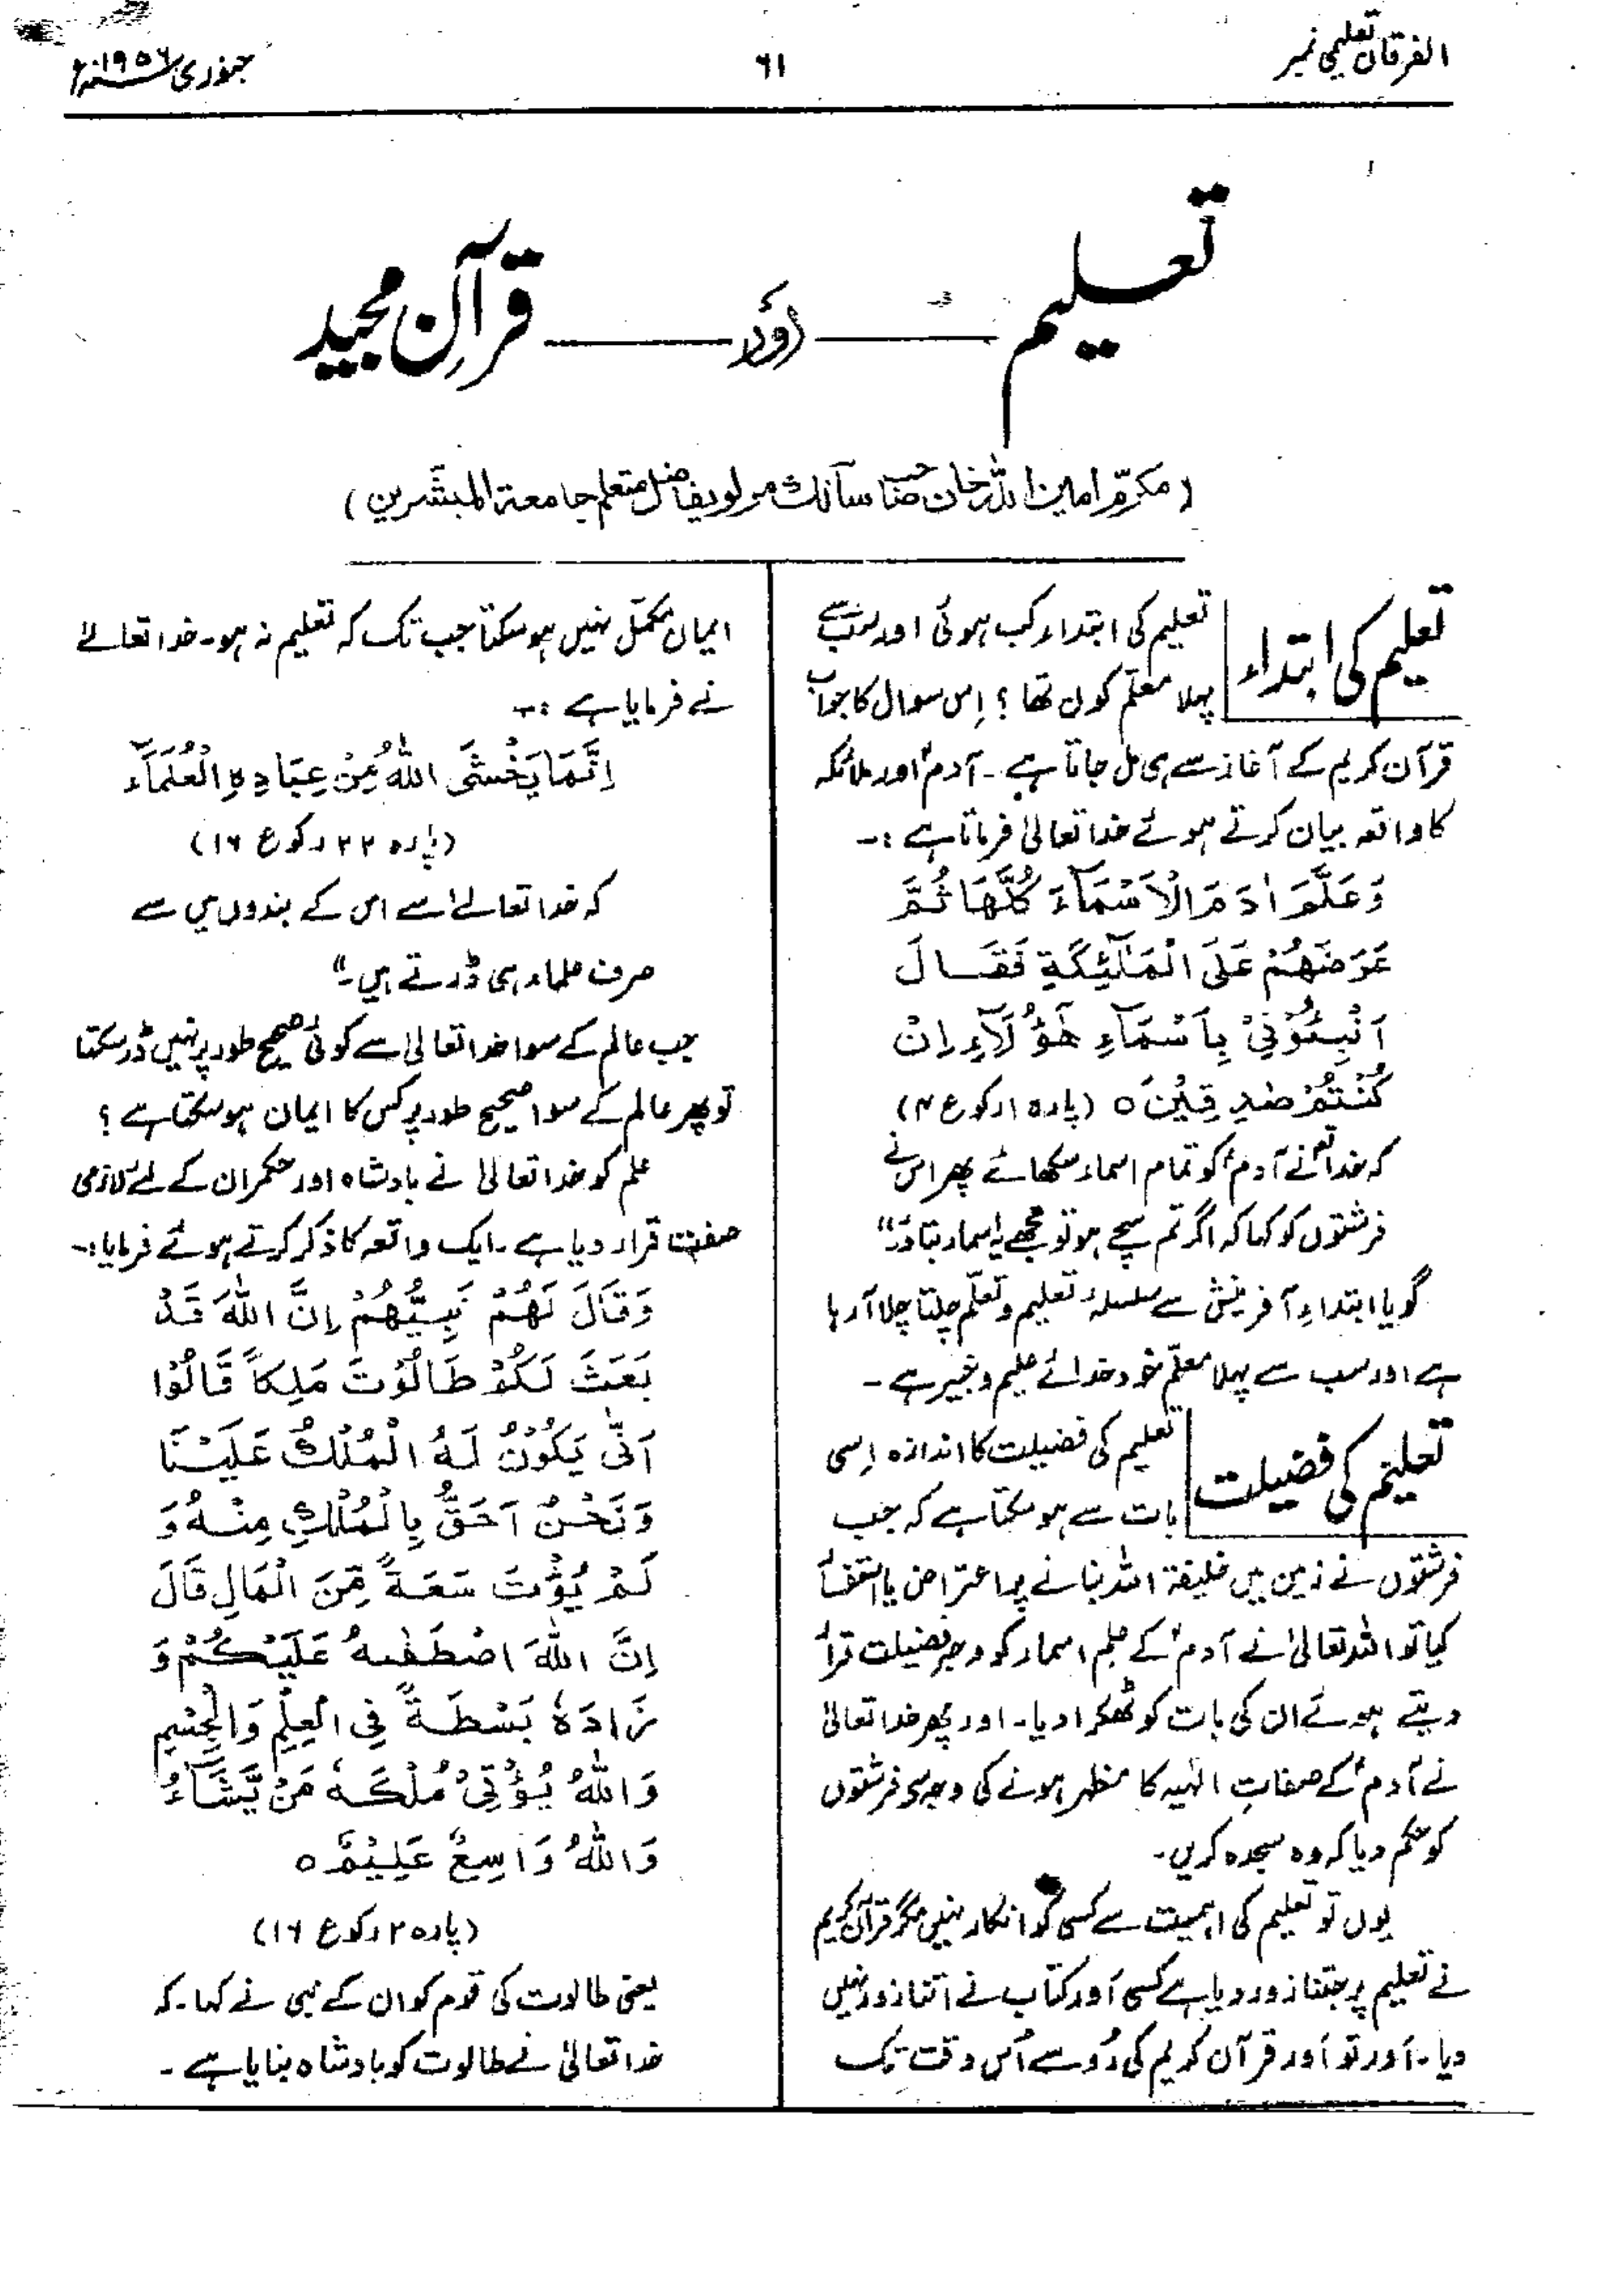 الفرقان تعلیمی نمبر
۶۱
جنوری ۱۹۵۶ء
تعلیم — اور — قرآنِ مجید
(مکرّم امین اللہ خان صاحب سالک مولوی فاضل متعلم جامعۃ المبشّرین)
تعلیم کی ابتداء
تعلیم کی ابتداء کب ہوئی اور سب سے
پہلا معلّم کون تھا ؟ اِس سوال کا جواب
قرآن کریم کے آغاز سے ہی مل جاتا ہے۔ آدمؑ اور ملائکہ
کا واقعہ بیان کرتے ہوئے خدا تعالیٰ فرماتا ہے :۔
وَعَلَّمَ اٰدَمَ الْاَسْمَآءَ كُلَّهَا ثُمَّ
عَرَضَهُمْ عَلَى الْمَلٰٓئِكَةِ فَقَالَ
اَنْۢبِئُوْنِيْ بِاَسْمَآءِ هٰٓؤُلَآءِ اِنْ
كُنْتُمْ صٰدِقِيْنَ ہ (پارہ ۱ رکوع ۴)
کہ خدا تعالیٰ نے آدمؑ کو تمام اسماء سکھائے پھر اس نے
فرشتوں کو کہا کہ اگر تم سچے ہو تو مجھے یہ اسماء بتا دو"
گویا ابتداءِ آفرینش سے سلسلۂ تعلیم و تعلّم چلتا چلا آ رہا
ہے اور سب سے پہلا معلّم خود خدائے علیم و خبیر ہے ۔
تعلیم کی فضیلت
تعلیم کی فضیلت کا اندازہ اِسی
بات سے ہو سکتا ہے کہ جب
فرشتوں نے زمین میں خلیفۃ اللہ بنانے پر اعتراض یا استفسار
کیا تو اللہ تعالیٰ نے آدمؑ کے علمِ اسماء کو وجہِ فضیلت قرار
دیتے ہوئے ان کی بات کو ٹھکرا دیا۔ اور پھر خدا تعالیٰ
نے آدمؑ کے صفاتِ الٰہیہ کا مظہر ہونے کی وجہ سے فرشتوں
کو حکم دیا کہ وہ سجدہ کریں۔
یوں تو تعلیم کی اہمیت سے کسی کو انکار نہیں مگر قرآن کریم
نے تعلیم پر جتنا زور دیا ہے کسی اَور کتاب نے اتنا زور نہیں
دیا۔ اَور تو اَور قرآن کریم کی رُو سے اُس وقت تک
ایمان مکمّل نہیں ہو سکتا جب تک کہ تعلیم نہ ہو۔ خدا تعالےٰ
نے فرمایا ہے :۔
اِنَّمَا يَخْشَى اللّٰهُ مِنْ عِبَادِهِ الْعُلَمَآءُ
(پارہ ۲۲ رکوع ۱۶)
کہ خدا تعالےٰ سے اس کے بندوں میں سے
صرف علماء ہی ڈرتے ہیں۔"
جب عالم کے سوا خدا تعالیٰ سے کوئی صحیح طور پر نہیں ڈر سکتا
تو پھر عالم کے سوا صحیح طور پر کس کا ایمان ہو سکتا ہے ؟
علم کو خدا تعالیٰ نے بادشاہ اور حکمران کے لئے لازمی
صفت قرار دیا ہے۔ ایک واقعہ کا ذکر کرتے ہوئے فرمایا :۔
وَقَالَ لَهُمْ نَبِيُّهُمْ اِنَّ اللّٰهَ قَدْ
بَعَثَ لَكُمْ طَالُوْتَ مَلِكًا قَالُوْا
اَنّٰى يَكُوْنُ لَهُ الْمُلْكُ عَلَيْنَا
وَنَحْنُ اَحَقُّ بِالْمُلْكِ مِنْهُ وَ
لَمْ يُؤْتَ سَعَةً مِّنَ الْمَالِ قَالَ
اِنَّ اللّٰهَ اصْطَفٰىهُ عَلَيْكُمْ وَ
زَادَهٗ بَسْطَةً فِي الْعِلْمِ وَالْجِسْمِ
وَاللّٰهُ يُؤْتِيْ مُلْكَهٗ مَنْ يَّشَآءُ
وَاللّٰهُ وَاسِعٌ عَلِيْمٌ ہ
(پارہ ۲ رکوع ۱۶)
یعنی طالوت کی قوم کو ان کے نبی نے کہا۔ کہ
خدا تعالیٰ نے طالوت کو بادشاہ بنایا ہے ۔